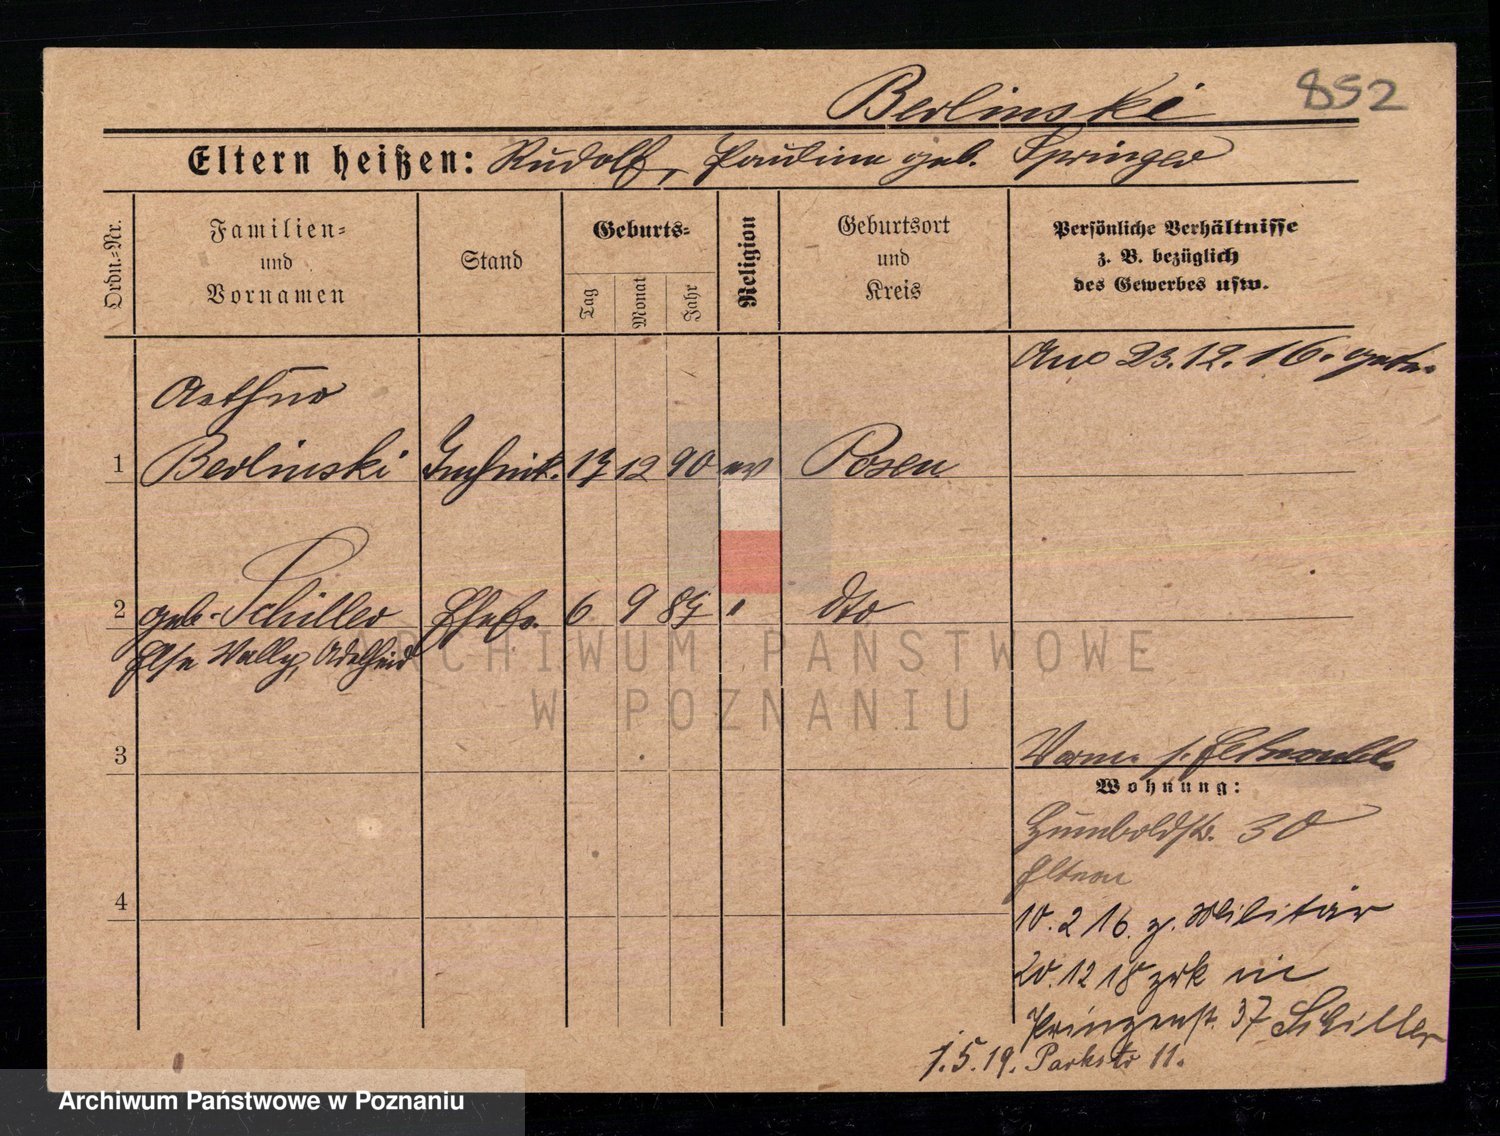 Berlinski 852
Eltern heißen: Rudolf, Pauline geb. Springer
Ordn.-Nr.
Familien-
und
Vornamen
Stand
Geburts-
Tag
Monat
Jahr
Religion
Geburtsort
und
Kreis
Persönliche Verhältnisse
z. B. bezüglich
des Gewerbes usw.
Am 23.12.16. getr.
Arthur
1 Berlinski 17 12 90 ev Posen
2 geb. Schiller Ehefr. 6 9 87 " dto
Else Vally, Adelheid
ARCHIWUM PAŃSTWOWE
W POZNANIU
3
Wohnung:
Humboldstr. 30
Eltern
4
10.2 16. z. Militär
20.12 18 zrk in
Prinzenst. 37 Schiller
1.5.19. Parkstr 11.
Archiwum Państwowe w Poznaniu